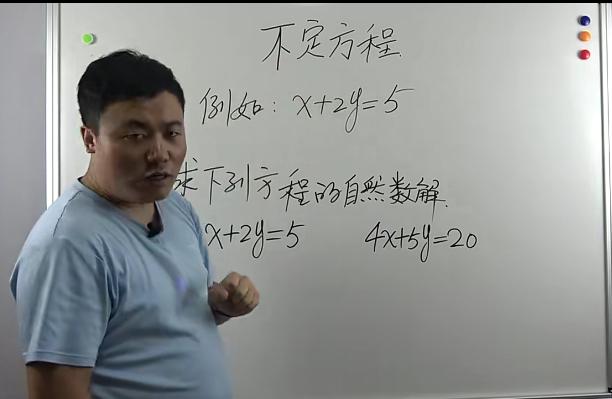 不定方程
例如: x+2y=5
求下列方程的自然数解
x+2y=5 4x+5y=20